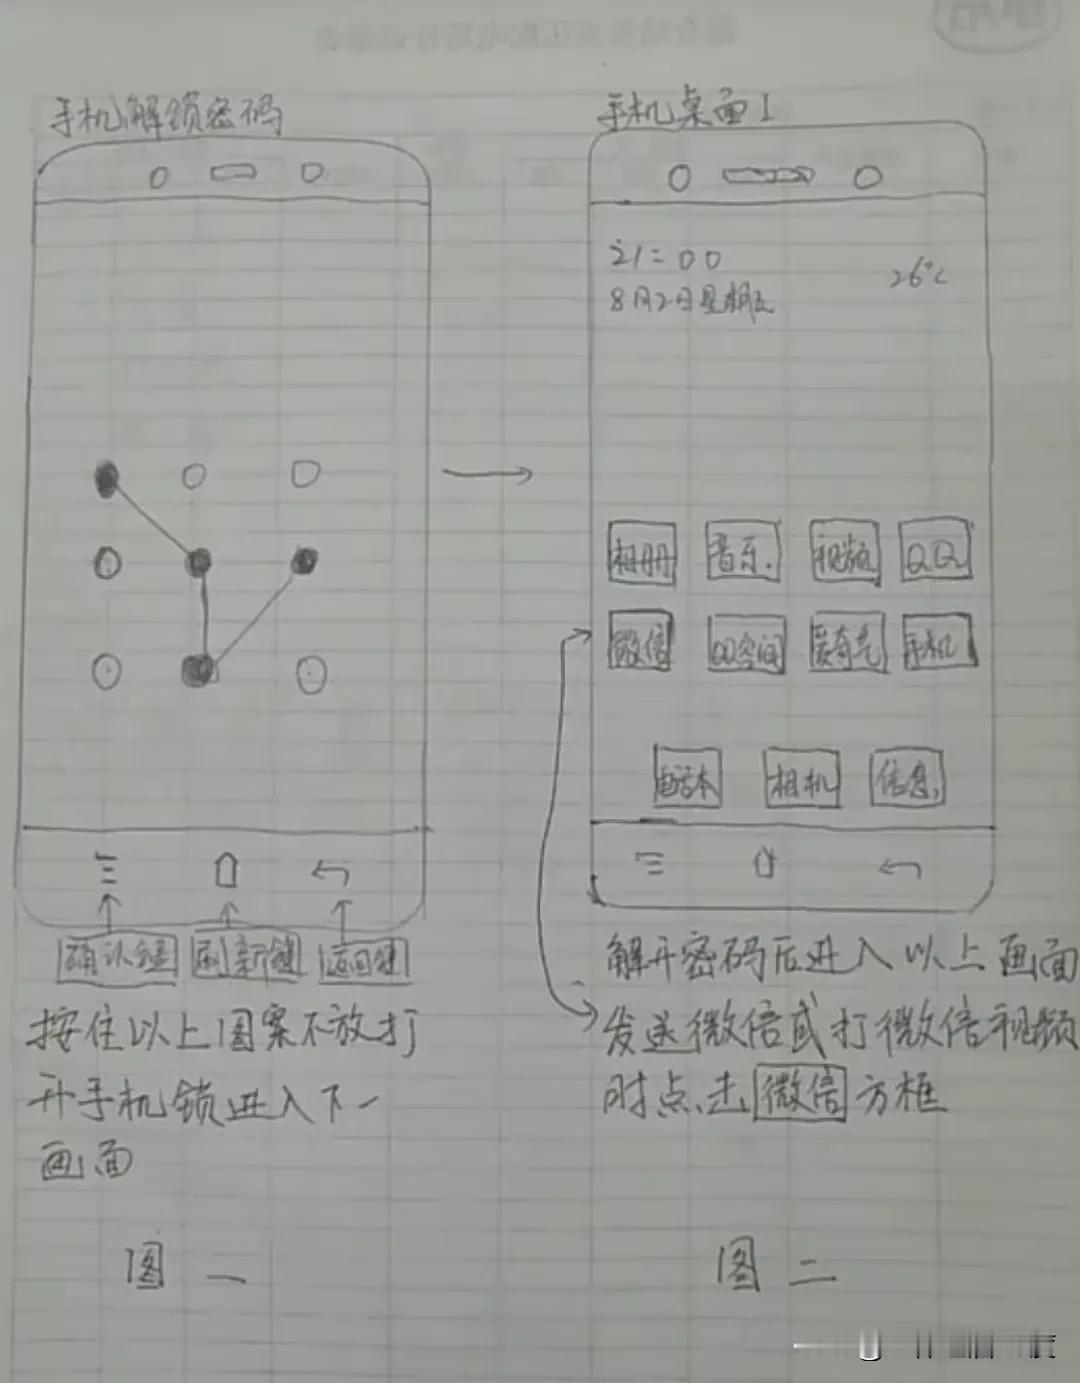 手机解锁密码
确认键
刷新键
返回键
按住以上图案不放打
开手机锁进入下一
画面
图一
手机桌面1
21:00
26℃
8月2日星期五
相册 音乐 视频 QQ
微信 QQ空间 爱奇艺 手机
电话本 相机 信息
解开密码后进入以上画面
发送微信或打微信视频
时点击微信方框
图二